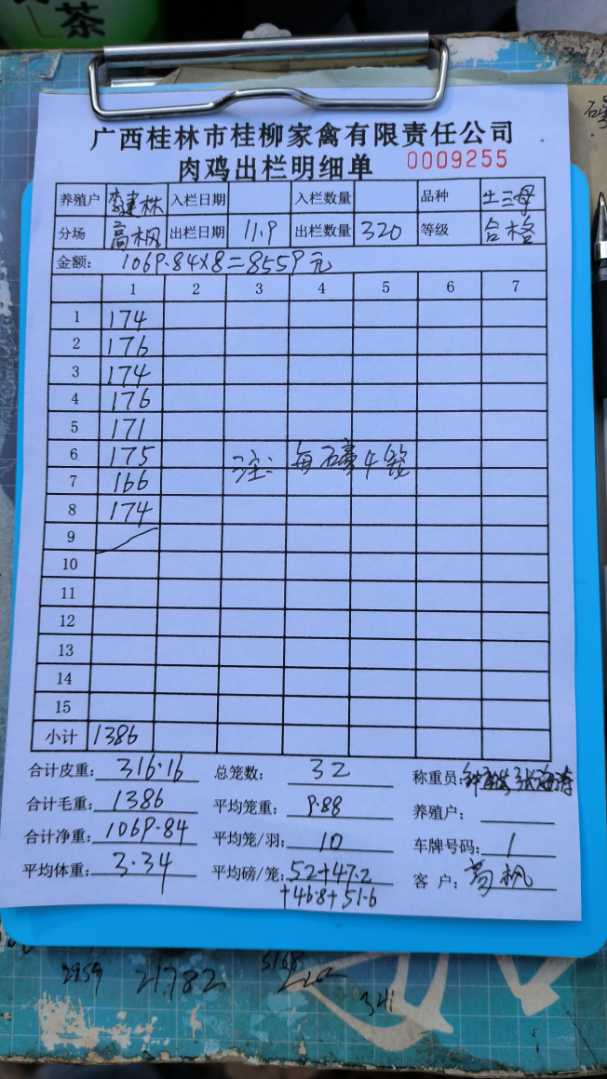 茶
广西桂林市桂柳家禽有限责任公司
肉鸡出栏明细单 0009255
养殖户 李建林 入栏日期 入栏数量 品种 土三母
分场 高枫 出栏日期 11.9 出栏数量 320 等级 合格
金额: 1069.84×8=8559元
1 2 3 4 5 6 7
1 174
2 176
3 174
4 176
5 171
6 175 注: 每磅4笼
7 166
8 174
9
10
11
12
13
14
15
小计 1386
合计皮重: 316.16 总笼数: 32 称重员:
合计毛重: 1386 平均笼重: 9.88 养殖户:
合计净重: 1069.84 平均笼/羽: 10 车牌号码: 1
平均体重: 3.34 平均磅/笼: 52+47.2 客 户: 高枫
+46.8+51.6
2959 21782
341